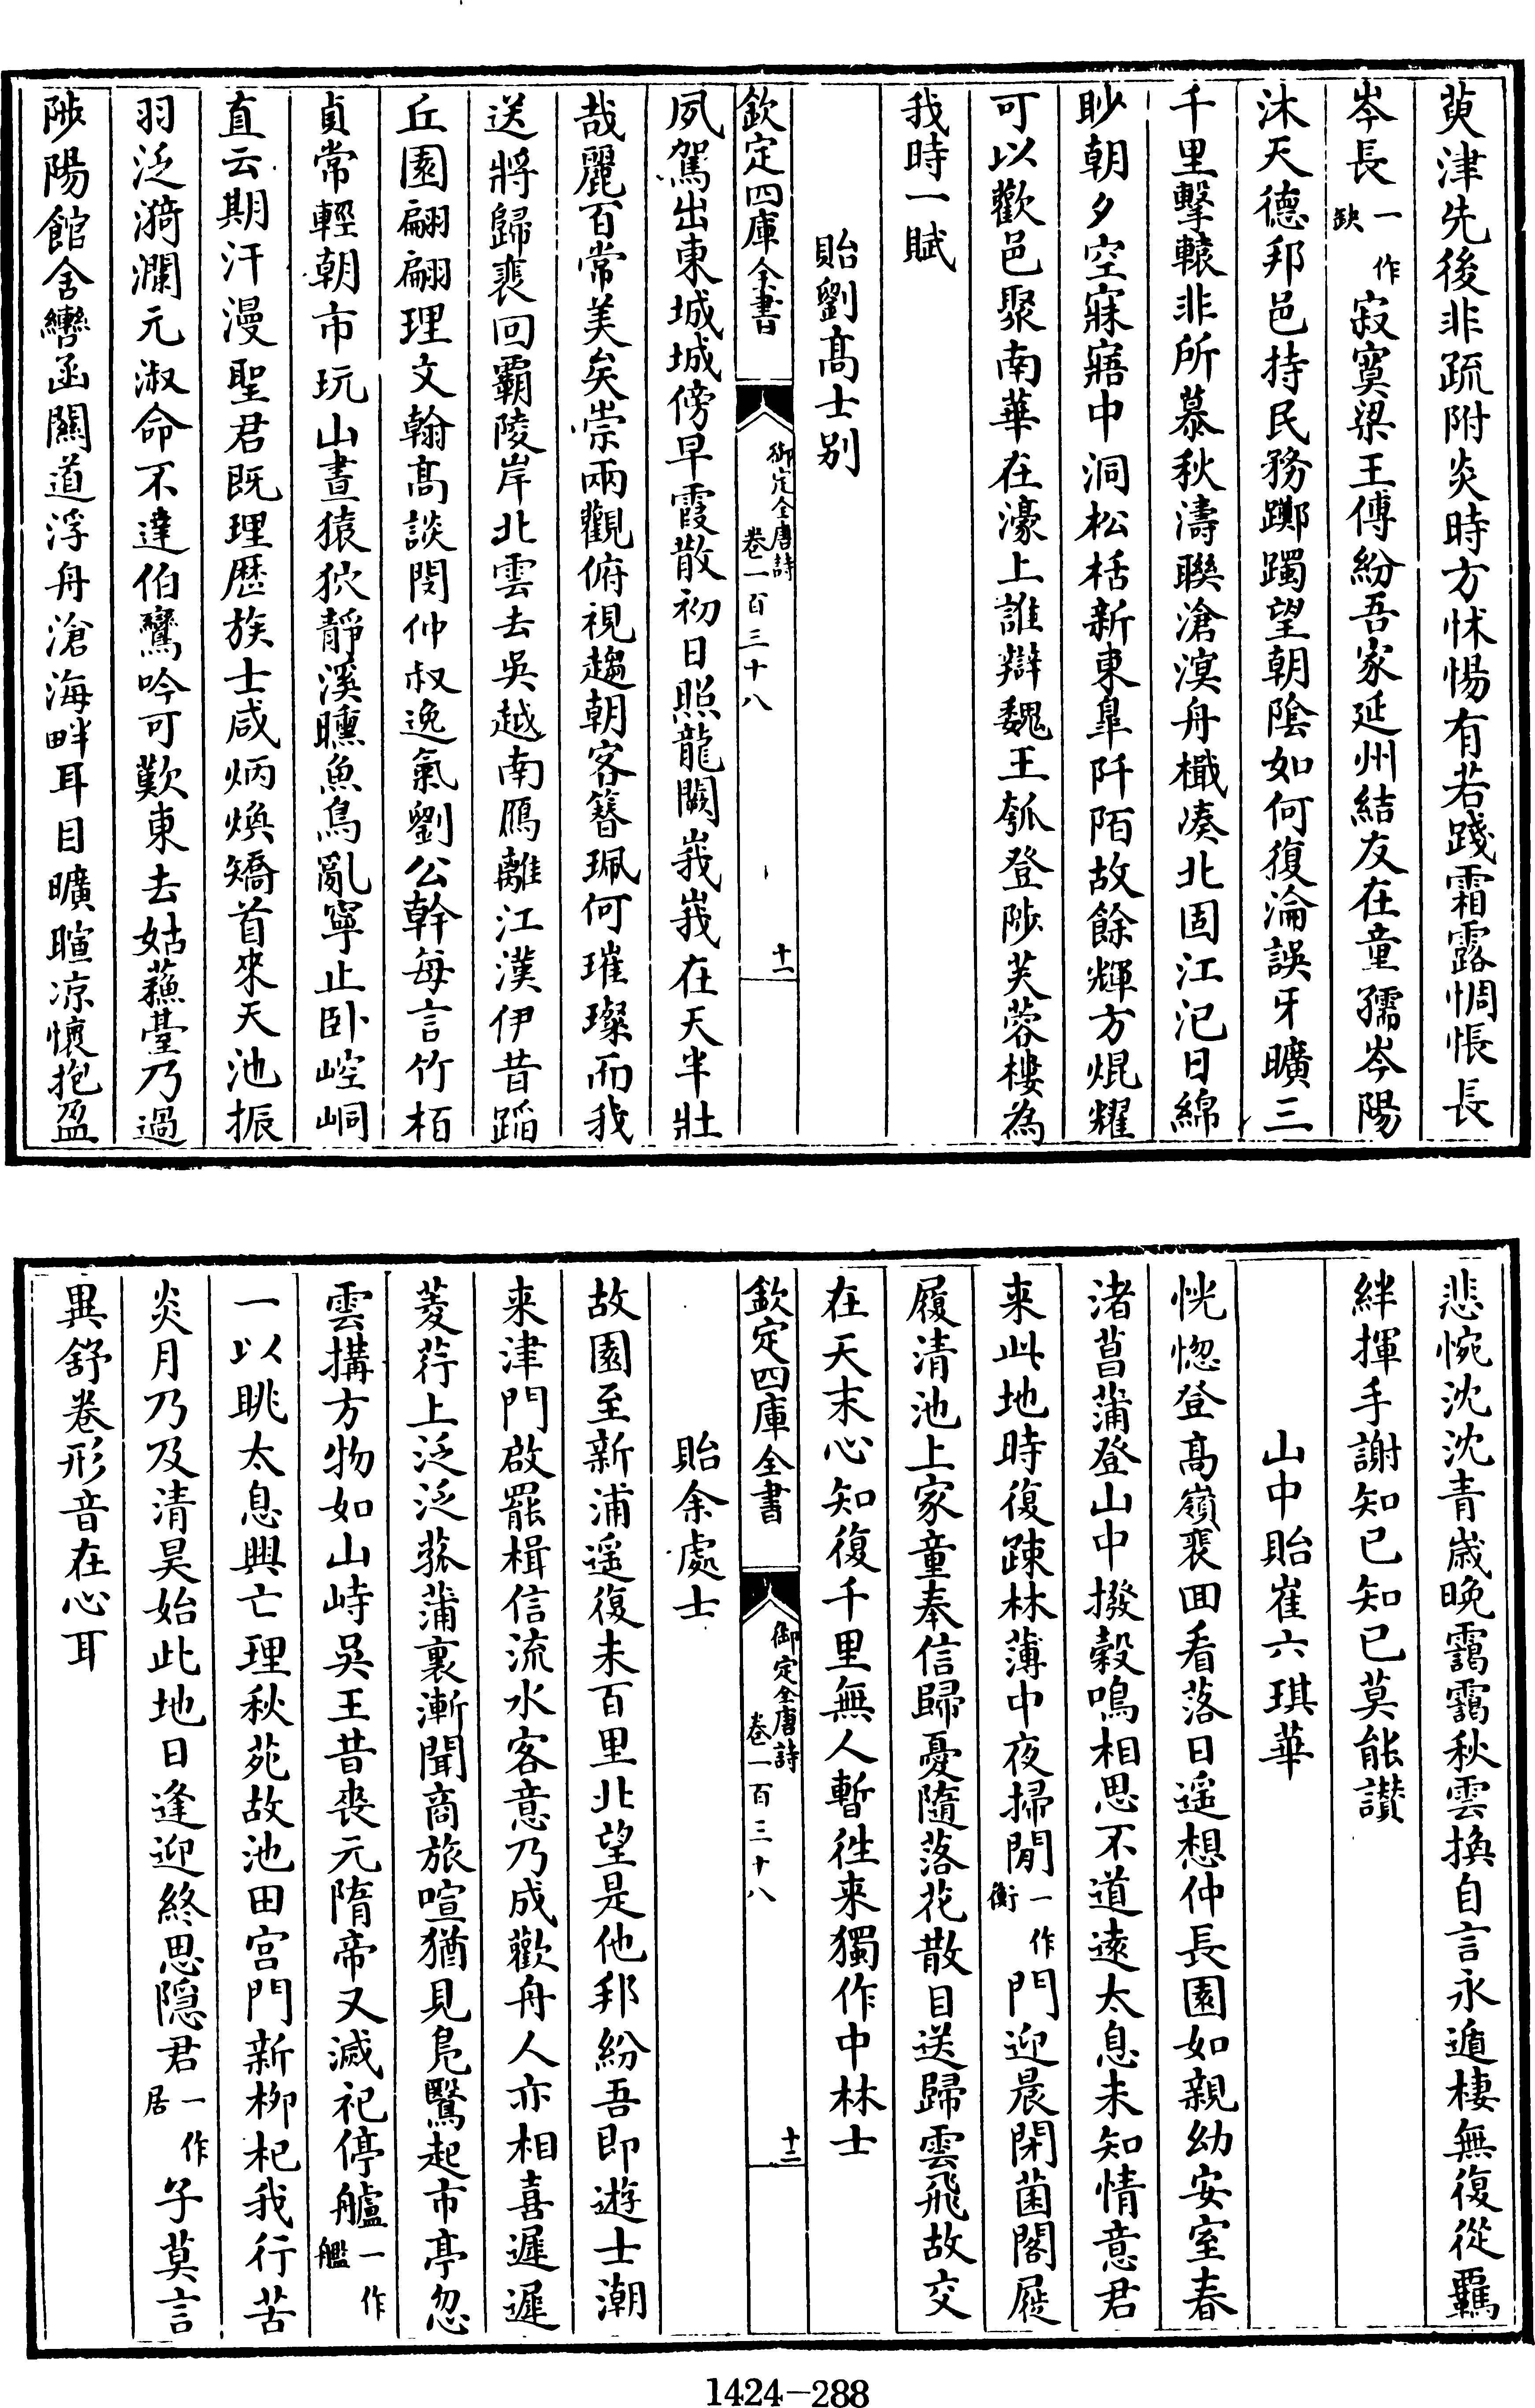 萸津先後非疏附炎時方怵惕有若踐霜露惆悵長
岑長一作缺寂寞梁王傅紛吾家延州結友在童孺岑陽
沐天德邦邑持民務躑躅望朝陰如何復淪誤牙曠三
千里擊轅非所慕秋濤聯滄溟舟檝凑北固江汜日綿
眇朝夕空寐寤中洞松栝新東皐阡陌故餘輝方焜耀
可以歡邑聚南華在濠上誰辯魏王瓠登陟芙蓉樓為
我時一賦
貽劉髙士别
欽定四庫全書
御定全唐詩
卷一百三十八
十一
夙駕出東城城傍早霞散初日照龍闕峩峩在天半壯
哉麗百常美矣崇兩觀俯視趨朝客簪珮何璀璨而我
送將歸裴回霸陵岸北雲去吳越南鴈離江漢伊昔蹈
丘園翩翩理文翰髙談閔仲叔逸氣劉公幹每言竹栢
貞常輕朝市玩山晝猿狖靜溪曛魚鳥亂寧止卧崆峒
直云期汗漫聖君既理歴族士咸炳煥矯首來天池振
羽泛漪瀾元淑命不達伯鸞吟可歎東去姑蘇臺乃過
陟陽館舍轡函關道浮舟滄海畔耳目曠暄凉懷抱盈
悲惋沈沈青歳晚靄靄秋雲換自言永遁棲無復從羈
絆揮手謝知已知已莫能讃
山中貽崔六琪華
恍惚登髙嶺裴回看落日遥想仲長園如親幼安室春
渚菖蒲登山中撥穀鳴相思不道遠太息未知情意君
来此地時復疎林薄中夜掃閒一作衡門迎晨閉菌閣屣
履清池上家童奉信歸憂隨落花散目送歸雲飛故交
在天末心知復千里無人暫徃来獨作中林士
欽定四庫全書
御定全唐詩
卷一百三十八
十二
貽余處士
故園至新浦遥復未百里北望是他邦紛吾即遊士潮
来津門啟罷楫信流水客意乃成歡舟人亦相喜遲遲
菱荇上泛泛菰蒲裏漸聞商旅喧猶見鳬鷖起市亭忽
雲搆方物如山峙吳王昔喪元隋帝又滅祀停艫一作艦
一以眺太息興亡理秋苑故池田宫門新栁杞我行苦
炎月乃及清昊始此地日逢迎終思隠君一作居子莫言
異舒卷形音在心耳
1424-288